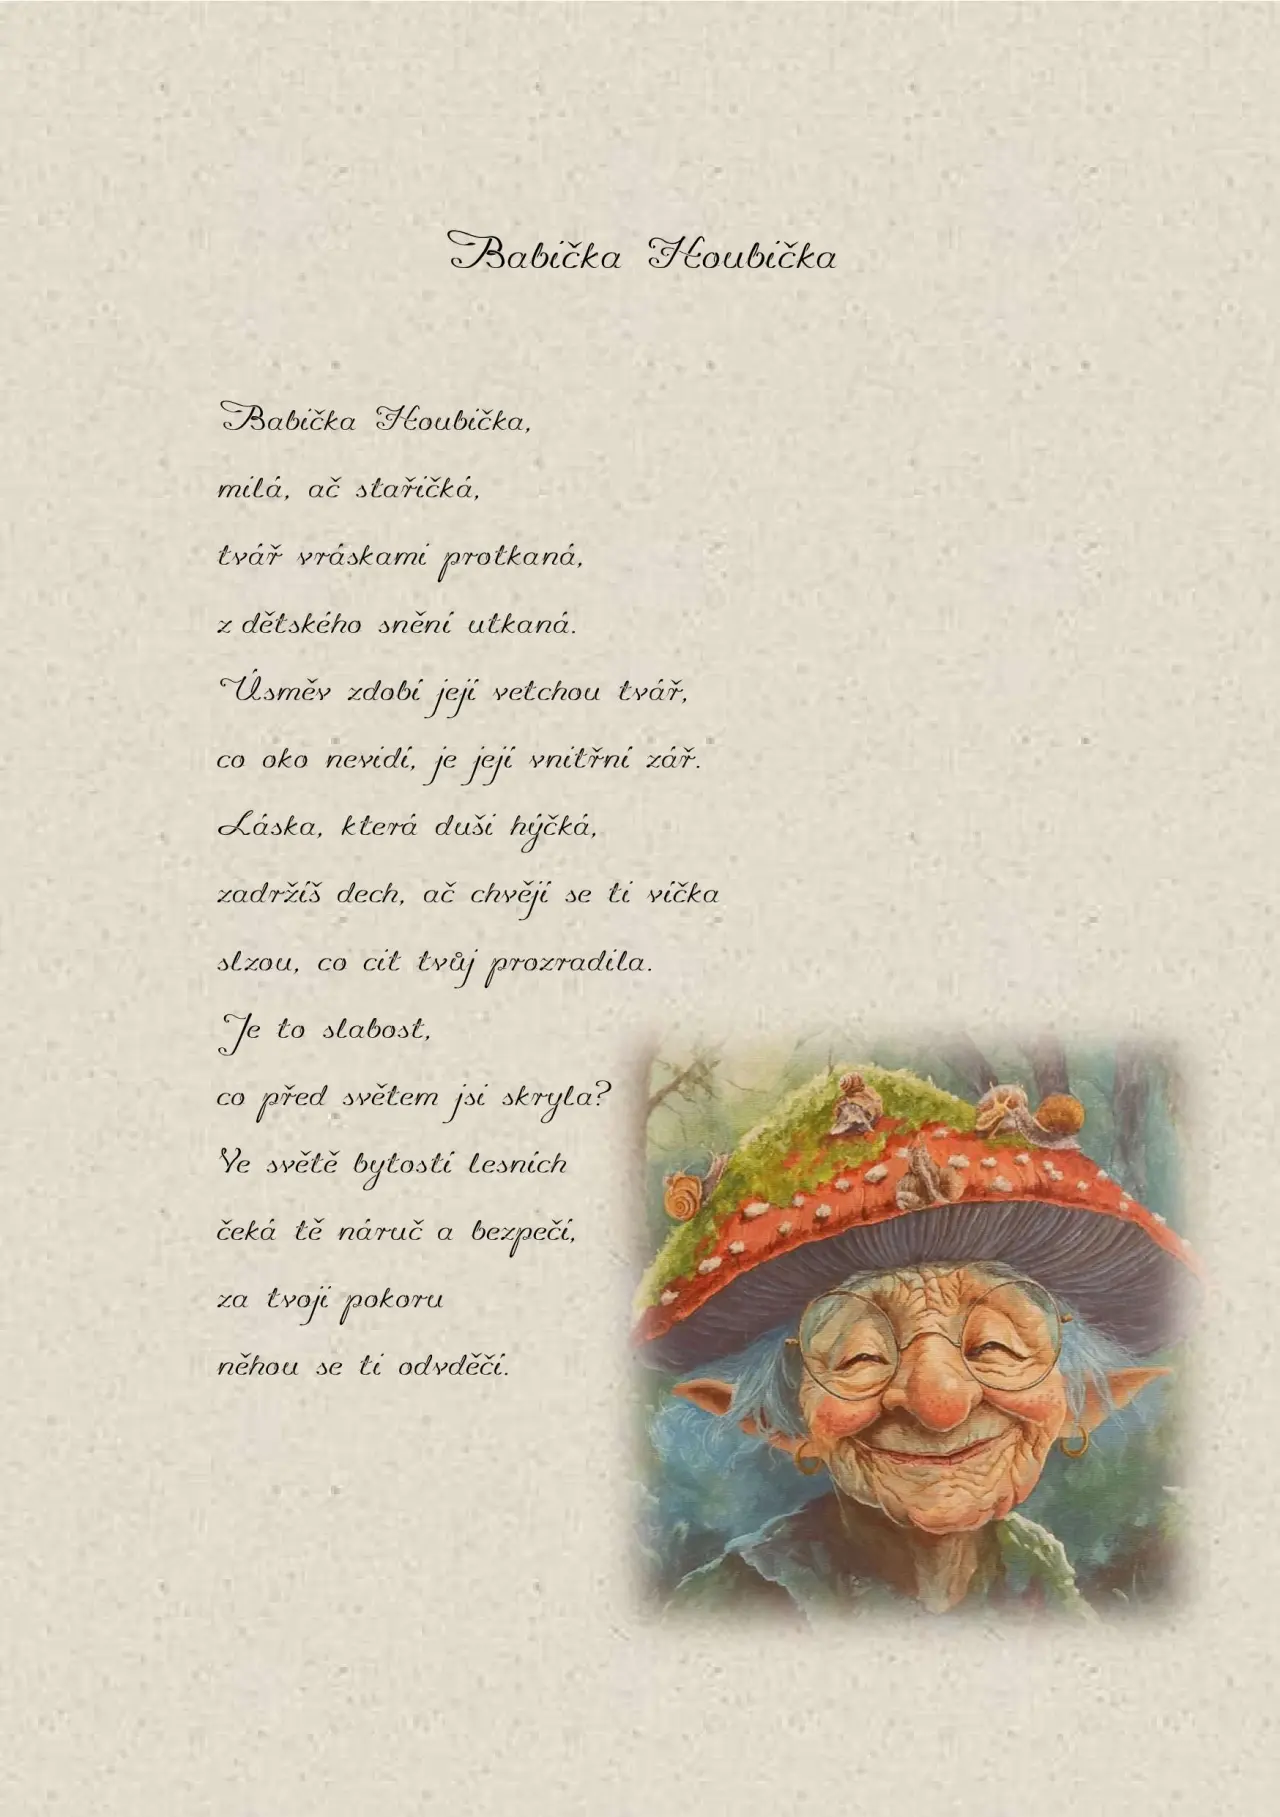 Babička Houbička
Babička Houbička,
milá, ač stařičká,
tvář vráskami protkaná,
z dětského snění utkaná.
Úsměv zdobí její vetchou tvář,
co oko nevidí, je její vnitřní zář.
Láska, která duši hýčká,
zadržíš dech, ač chvějí se ti víčka
slzou, co cit tvůj prozradila.
Je to slabost,
co před světem jsi skryla?
Ve světě bytostí lesních
čeká tě náruč a bezpečí,
za tvoji pokoru
něhou se ti odvděčí.